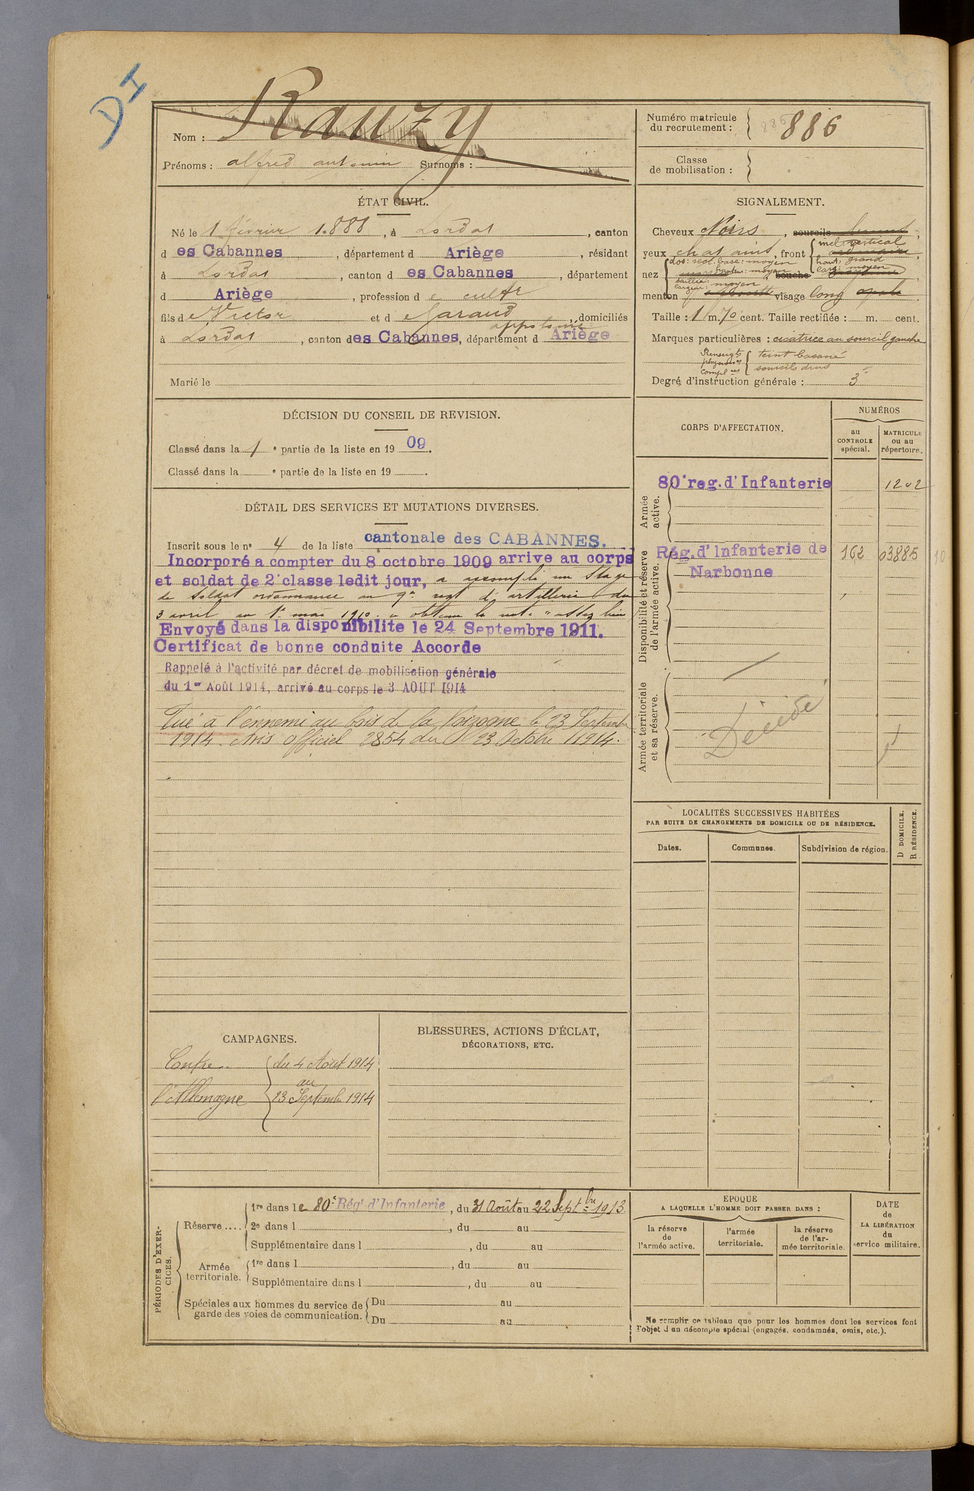 DI
Nom : Rauzy
Prénoms : alfred antonin Surnoms :
Numéro matricule
du recrutement : 886
Classe
de mobilisation :
ÉTAT CIVIL.
Né le 1 février 1888, à Lordat, canton
d es Cabannes, département d Ariège, résidant
à Lordat, canton d es Cabannes, département
d Ariège, profession d e cultr
fils d e Victor et d e Garaud appolonie, domiciliés
à Lordat, canton des Cabannes, département d Ariège
Marié le
SIGNALEMENT.
Cheveux Noirs, sourcils
yeux chat , front incl vertical
haut: grand
nez dos: base: moyen
bouche
menton visage long
Taille : 1 m. 70 cent. Taille rectifiée : m. cent.
Marques particulières : cicatrice au sourcil gauche
Renseigts
physion
Compl res
teint basané
sourcils drus
Degré d'instruction générale : 3
DÉCISION DU CONSEIL DE REVISION.
Classé dans la 1 e partie de la liste en 1909.
Classé dans la e partie de la liste en 19 .
CORPS D'AFFECTATION.
NUMÉROS
au
CONTROLE
spécial.
MATRICULE
ou au
répertoire.
Armée
active.
80e reg. d'Infanterie 1202
Disponibilité et réserve
de l'armée active.
Rég. d'Infanterie de 162 03885
Narbonne
Armée territoriale
et sa réserve.
Décédé
DÉTAIL DES SERVICES ET MUTATIONS DIVERSES.
Inscrit sous le no 4 de la liste cantonale des CABANNES.
Incorporé a compter du 8 octobre 1909 arrive au corps
et soldat de 2e classe ledit jour, a accompli un stage
de soldat ordonnance au 9e regt d'artillerie du
3 avril au 1er mai 1910.
Envoyé dans la disponibilite le 24 Septembre 1911.
Certificat de bonne conduite Accorde
Rappelé à l'activité par décret de mobilisation générale
du 1er Août 1914, arrivé au corps le 3 AOUT 1914
Tué à l'ennemi au bois de la Voisogne le 23 Septembre
1914. Avis officiel 2854 du 23 Octobre 1914.
LOCALITÉS SUCCESSIVES HABITÉES
PAR SUITE DE CHANGEMENTS DE DOMICILE OU DE RÉSIDENCE.
Dates.
Communes.
Subdivision de région.
D DOMICILE.
R RÉSIDENCE.
CAMPAGNES.
Contre du 4 Août 1914
au
l'Allemagne 23 Septembre 1914
BLESSURES, ACTIONS D'ÉCLAT,
DÉCORATIONS, ETC.
PÉRIODES D'EXER-
CICES.
Réserve ....
1re dans le 80e Régt d'Infanterie, du 31 Août au 22 Septbre 1913
2e dans l , du au
Supplémentaire dans l , du au
Armée
territoriale.
1re dans l , du au
Supplémentaire dans l , du au
Spéciales aux hommes du service de
garde des voies de communication.
Du au
Du au
EPOQUE
A LAQUELLE L'HOMME DOIT PASSER DANS :
la réserve
de
l'armée active.
l'armée
territoriale.
la réserve
de l'ar-
mée territoriale.
DATE
de
LA LIBÉRATION
du
service militaire.
Ne remplir ce tableau que pour les hommes dont les services font
l'objet d'un décompte spécial (engagés, condamnés, omis, etc.).